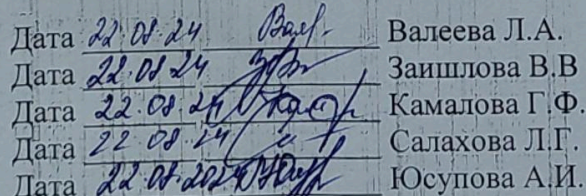 Дата 22.08.24 Вал Валеева Л.А.
Дата 22.08.24 Заишлова В.В
Дата 22.08.24 Камалова Г.Ф.
Дата 22 08.24 Салахова Л.Г.
Дата 22.08.2024 Юсупова А.И